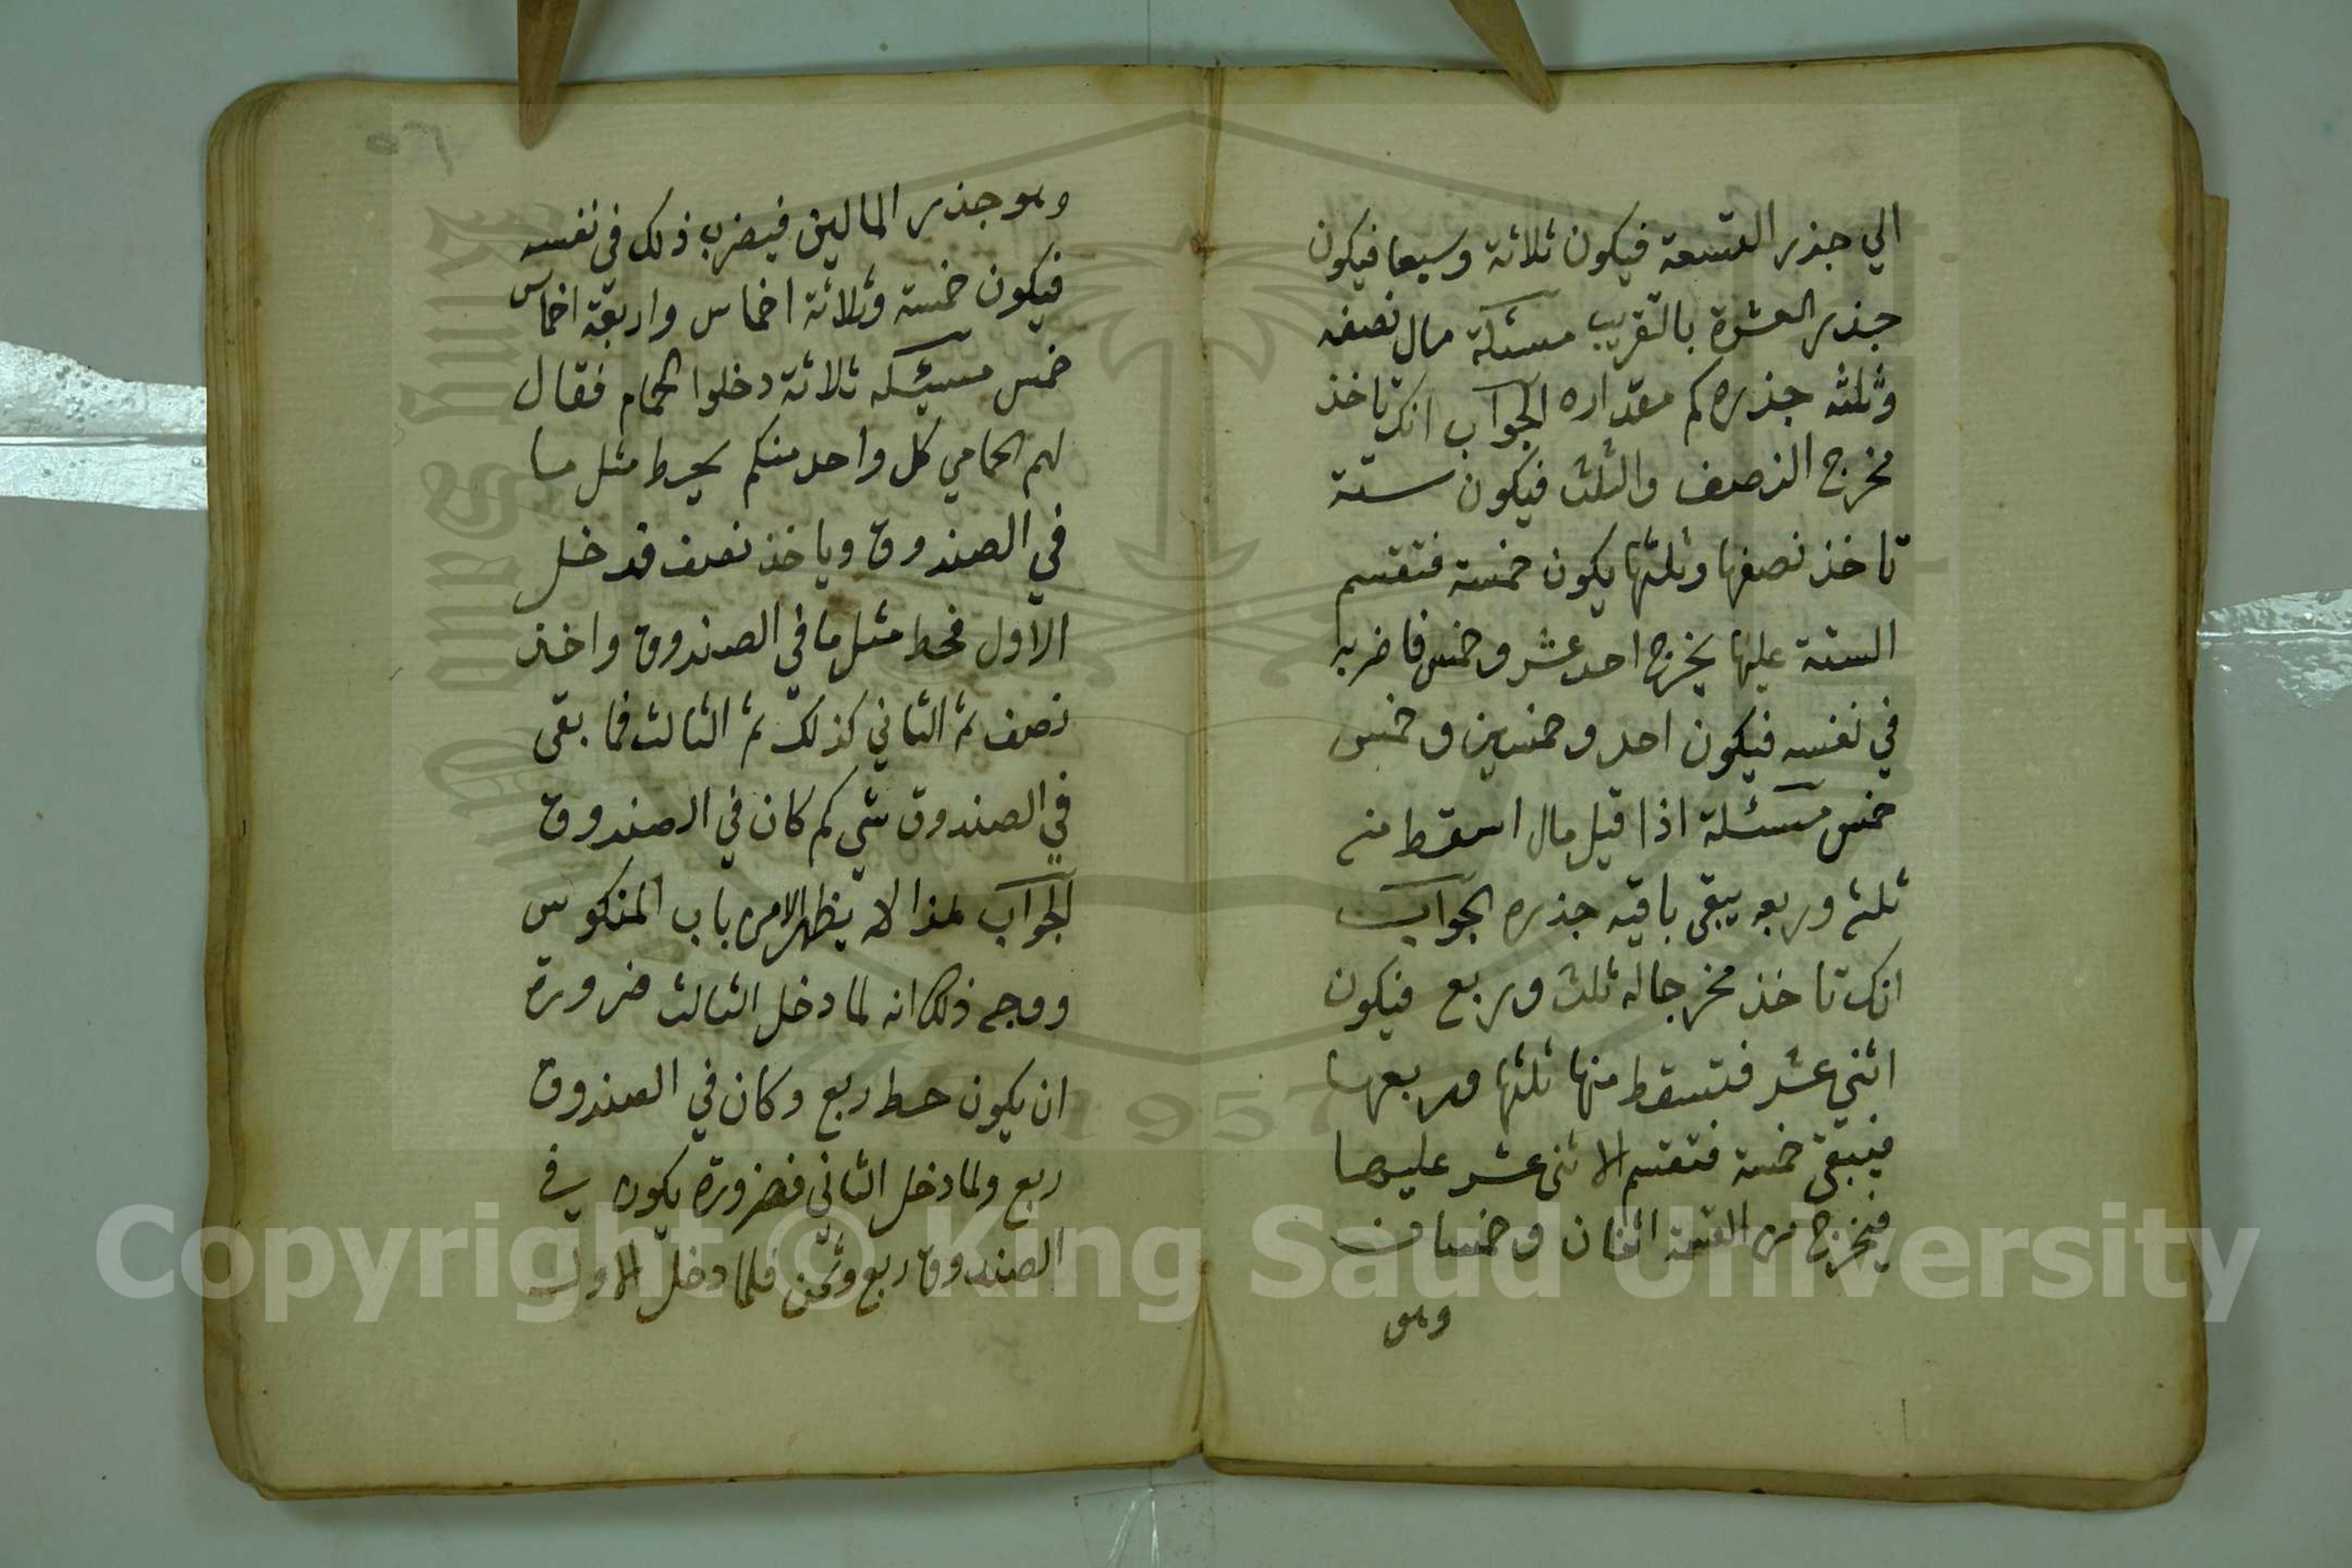 الي جذر التسعة فيكون ثلاثة وسبعا فيكون
جذر العشرة بالتقريب مسئلة مال نصفه
وثلثه جذره كم مقداره الجواب انك تاخذ
مخرج النصف والثلث فيكون ستة
تاخذ نصفها وثلثها يكون خمسة فتقسم
الستة عليها يخرج احد عشر وخمس فاضربه
في نفسه فيكون احد وخمسين وخمس
خمس مسئلة اذا قيل مال اسقط منه
ثلثه وربعه يبقى باقيه جذره الجواب
انك تاخذ مخرجا له ثلث وربع فيكون
اثني عشر فتسقط منها ثلثها وربعها
فيبقى خمسة فتقسم الاثنى عشر عليها
فيخرج من القسمة اثنان وخمسان
وهو
وهو جذر المالين فيضرب ذلك في نفسه
فيكون خمسة وثلاثة اخماس واربعة اخماس
خمس مسئلة ثلاثة دخلوا الحمام فقال
لهم الحمامي كل واحد منكم يحط مثل ما
في الصندوق وياخذ نصف فدخل
الاول فحط مثل ما في الصندوق واخذ
نصف ثم الثاني كذلك ثم الثالث فما بقى
في الصندوق شي كم كان في الصندوق
الجواب هذا لا يظهر الا من باب المنكوس
ووجه ذلك انه لما دخل الثالث ضرورة
ان يكون حط ربع وكان في الصندوق
ربع ولما دخل الثاني فضرورة يكون في
الصندوق ربع وثمن فلما دخل الاول
Copyright © King Saud University
1957